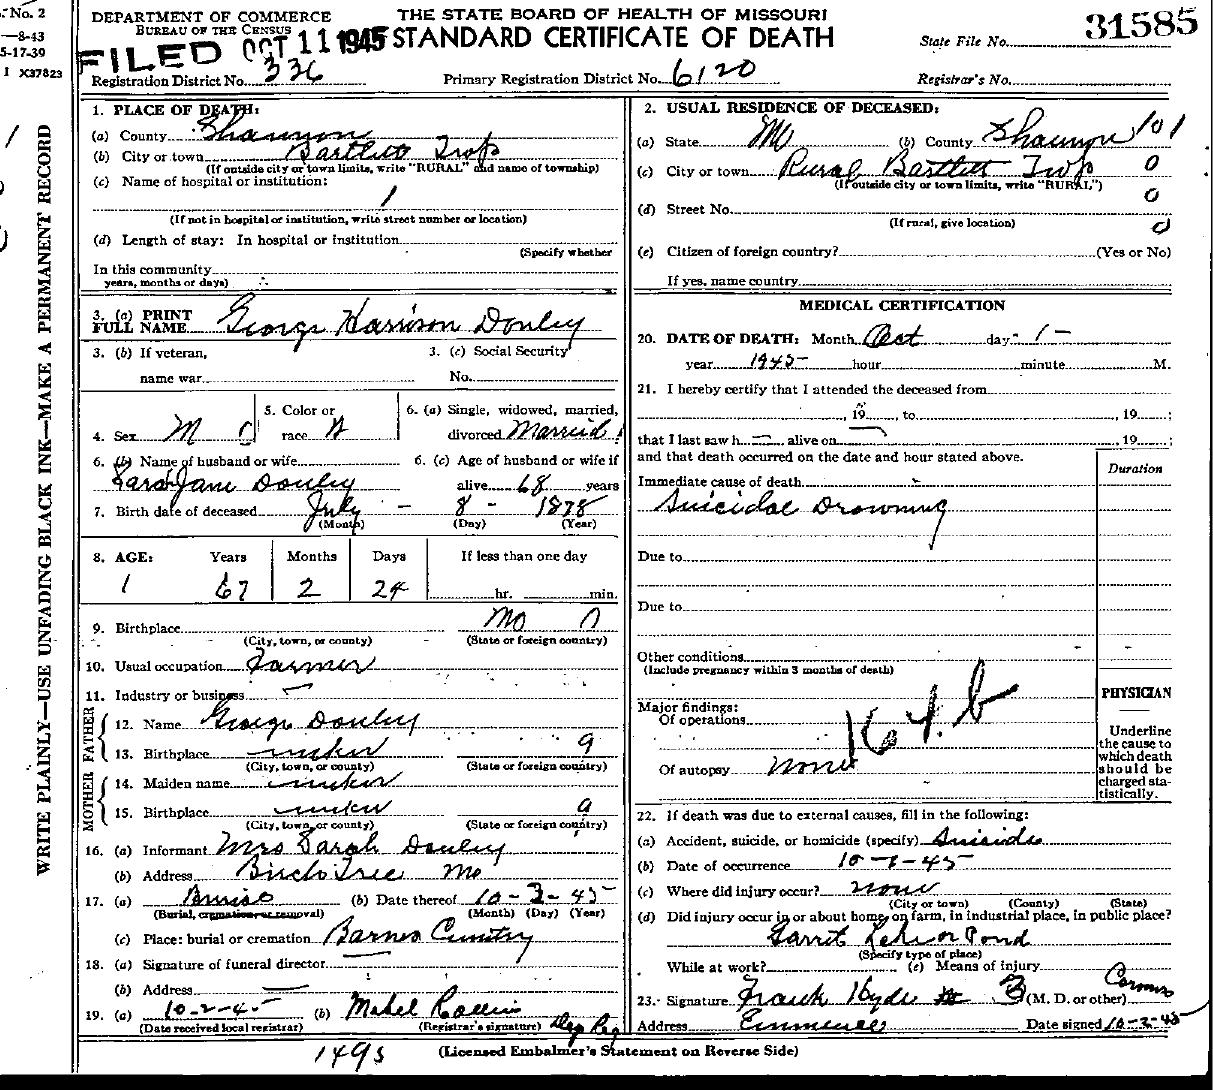 S. No. 2
—8-43
5-17-39
I X37823
WRITE PLAINLY—USE UNFADING BLACK INK—MAKE A PERMANENT RECORD
DEPARTMENT OF COMMERCE
BUREAU OF THE CENSUS
FILED OCT 11 1945
THE STATE BOARD OF HEALTH OF MISSOURI
STANDARD CERTIFICATE OF DEATH
State File No. 31585
Registration District No. 336
Primary Registration District No. 6120
Registrar's No.
1. PLACE OF DEATH:
(a) County Shannon
(b) City or town Bartlett Twp
(If outside city or town limits, write "RURAL" and name of township)
(c) Name of hospital or institution:
1
(If not in hospital or institution, write street number or location)
(d) Length of stay: In hospital or institution
(Specify whether
In this community
years, months or days)
3. (a) PRINT FULL NAME George Harrison Donley
3. (b) If veteran,
name war
3. (c) Social Security
No.
4. Sex M
5. Color or race W
6. (a) Single, widowed, married, divorced Married
6. (b) Name of husband or wife
Sarah Jane Donley
6. (c) Age of husband or wife if
alive 68 years
7. Birth date of deceased July - 8 - 1878
(Month) (Day) (Year)
8. AGE: Years Months Days If less than one day
1 67 2 24 hr. min.
9. Birthplace Mo
(City, town, or county) (State or foreign country)
10. Usual occupation Farmer
11. Industry or business
FATHER
12. Name George Donley
13. Birthplace unkn 9
(City, town, or county) (State or foreign country)
MOTHER
14. Maiden name unkn
15. Birthplace unkn 9
(City, town, or county) (State or foreign country)
16. (a) Informant Mrs Sarah Donley
(b) Address Birch Tree Mo
17. (a) Burial (b) Date thereof 10-3-45
(Burial, cremation or removal) (Month) (Day) (Year)
(c) Place: burial or cremation Barnes Cemetry
18. (a) Signature of funeral director
(b) Address
19. (a) 10-2-45 (b) Mabel Rollins
(Date received local registrar) (Registrar's signature) Dep Reg
1493
2. USUAL RESIDENCE OF DECEASED:
(a) State Mo (b) County Shannon 101
(c) City or town Rural Bartlett Twp 0
(If outside city or town limits, write "RURAL")
0
(d) Street No.
(If rural, give location)
0
(e) Citizen of foreign country? (Yes or No)
If yes, name country
MEDICAL CERTIFICATION
20. DATE OF DEATH: Month Oct day 1-
year 1945 hour minute M.
21. I hereby certify that I attended the deceased from
, 19 , to , 19 ;
that I last saw h — alive on , 19 ;
and that death occurred on the date and hour stated above.
Duration
Immediate cause of death
Suicidal Drowning
Due to
Due to
Other conditions
(Include pregnancy within 3 months of death)
Major findings:
Of operations
164.b
Of autopsy none
PHYSICIAN
Underline the cause to which death should be charged statistically.
22. If death was due to external causes, fill in the following:
(a) Accident, suicide, or homicide (specify) Suicide
(b) Date of occurrence 10-1-45
(c) Where did injury occur? none
(City or town) (County) (State)
(d) Did injury occur in or about home, on farm, in industrial place, in public place?
Pond
(Specify type of place)
While at work? (e) Means of injury
23. Signature Frank Hyde 3 (M. D. or other) Coroner
Address Eminence Date signed 10-2-45
(Licensed Embalmer's Statement on Reverse Side)